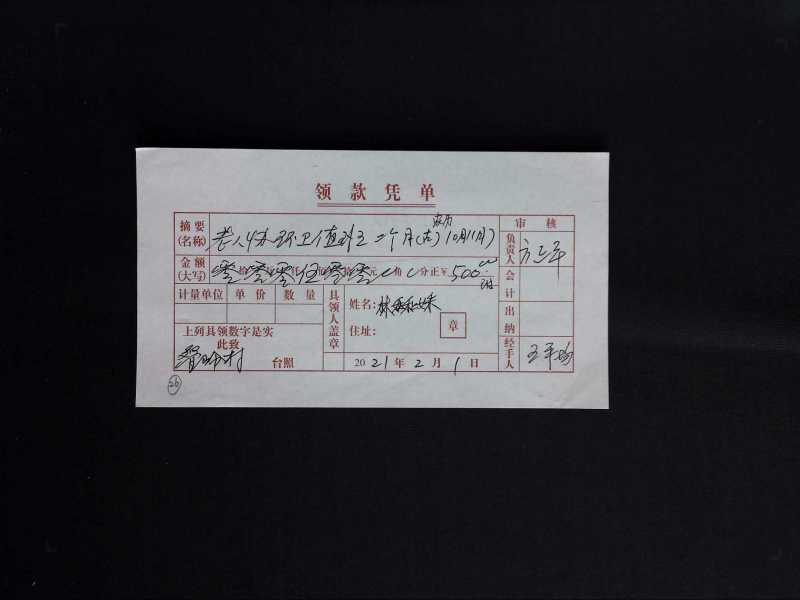 领款凭单
审核
摘要
(名称)
老人 环卫值班 二个月( 农历10月11月)
负责人
金额
(大写)
零拾零万零仟伍佰零拾零元 角 分正¥500.00
会计
计量单位 单价 数量
具领人盖章
姓名: 林 妹
住址:
章
出纳
上列具领数字是实
此致
村 台照
2021年2月1日
经手人
26